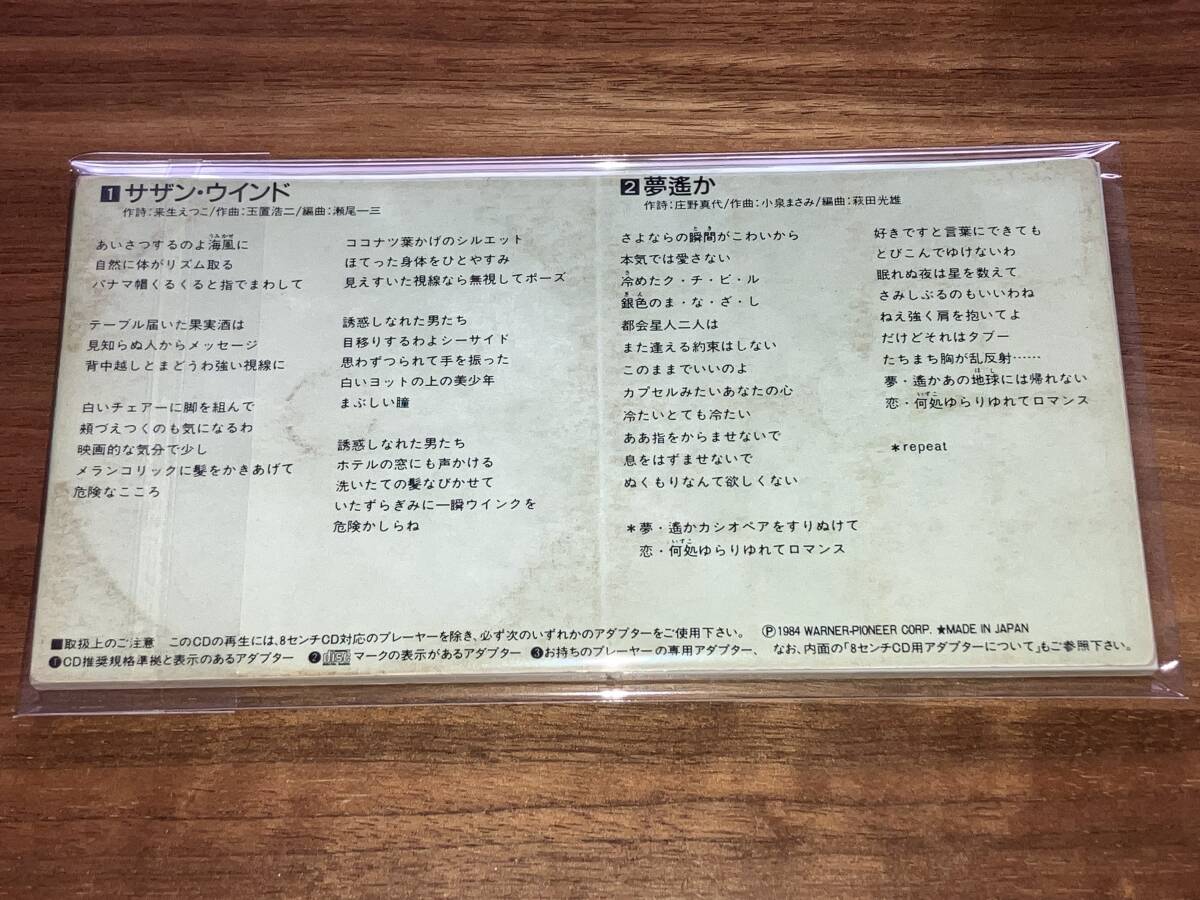 1 サザン・ウインド
作詩:来生えつこ/作曲:玉置浩二/編曲:瀬尾一三
あいさつするのよ海風に
うみかぜ
自然に体がリズム取る
パナマ帽くるくると指でまわして
テーブル届いた果実酒は
見知らぬ人からメッセージ
背中越しとまどうわ強い視線に
白いチェアーに脚を組んで
頬づえつくのも気になるわ
映画的な気分で少し
メランコリックに髪をかきあげて
危険なこころ
ココナツ葉かげのシルエット
ほてった身体をひとやすみ
見えすいた視線なら無視してポーズ
誘惑しなれた男たち
目移りするわよシーサイド
思わずつられて手を振った
白いヨットの上の美少年
まぶしい瞳
誘惑しなれた男たち
ホテルの窓にも声かける
洗いたての髪なびかせて
いたずらぎみに一瞬ウインクを
危険かしらね
2 夢遙か
作詩:庄野真代/作曲:小泉まさみ/編曲:萩田光雄
さよならの瞬間がこわいから
とき
本気では愛さない
冷めたク・チ・ビ・ル
さ
銀色のま・な・ざ・し
ぎん
都会星人二人は
また逢える約束はしない
このままでいいのよ
カプセルみたいあなたの心
冷たいとても冷たい
ああ指をからませないで
息をはずませないで
ぬくもりなんて欲しくない
*夢・遙かカシオペアをすりぬけて
恋・何処ゆらりゆれてロマンス
いずこ
好きですと言葉にできても
とびこんでゆけないわ
眠れぬ夜は星を数えて
さみしぶるのもいいわね
ねえ強く肩を抱いてよ
だけどそれはタブー
たちまち胸が乱反射……
夢・遙かあの地球には帰れない
ほし
恋・何処ゆらりゆれてロマンス
いずこ
*repeat
■取扱上のご注意 このCDの再生には、8センチCD対応のプレーヤーを除き、必ず次のいずれかのアダプターをご使用下さい。 Ⓟ1984 WARNER-PIONEER CORP. ★MADE IN JAPAN
❶CD推奨規格準拠と表示のあるアダプター ❷disc マークの表示があるアダプター ❸お持ちのプレーヤーの専用アダプター、 なお、内面の「8センチCD用アダプターについて」もご参照下さい。